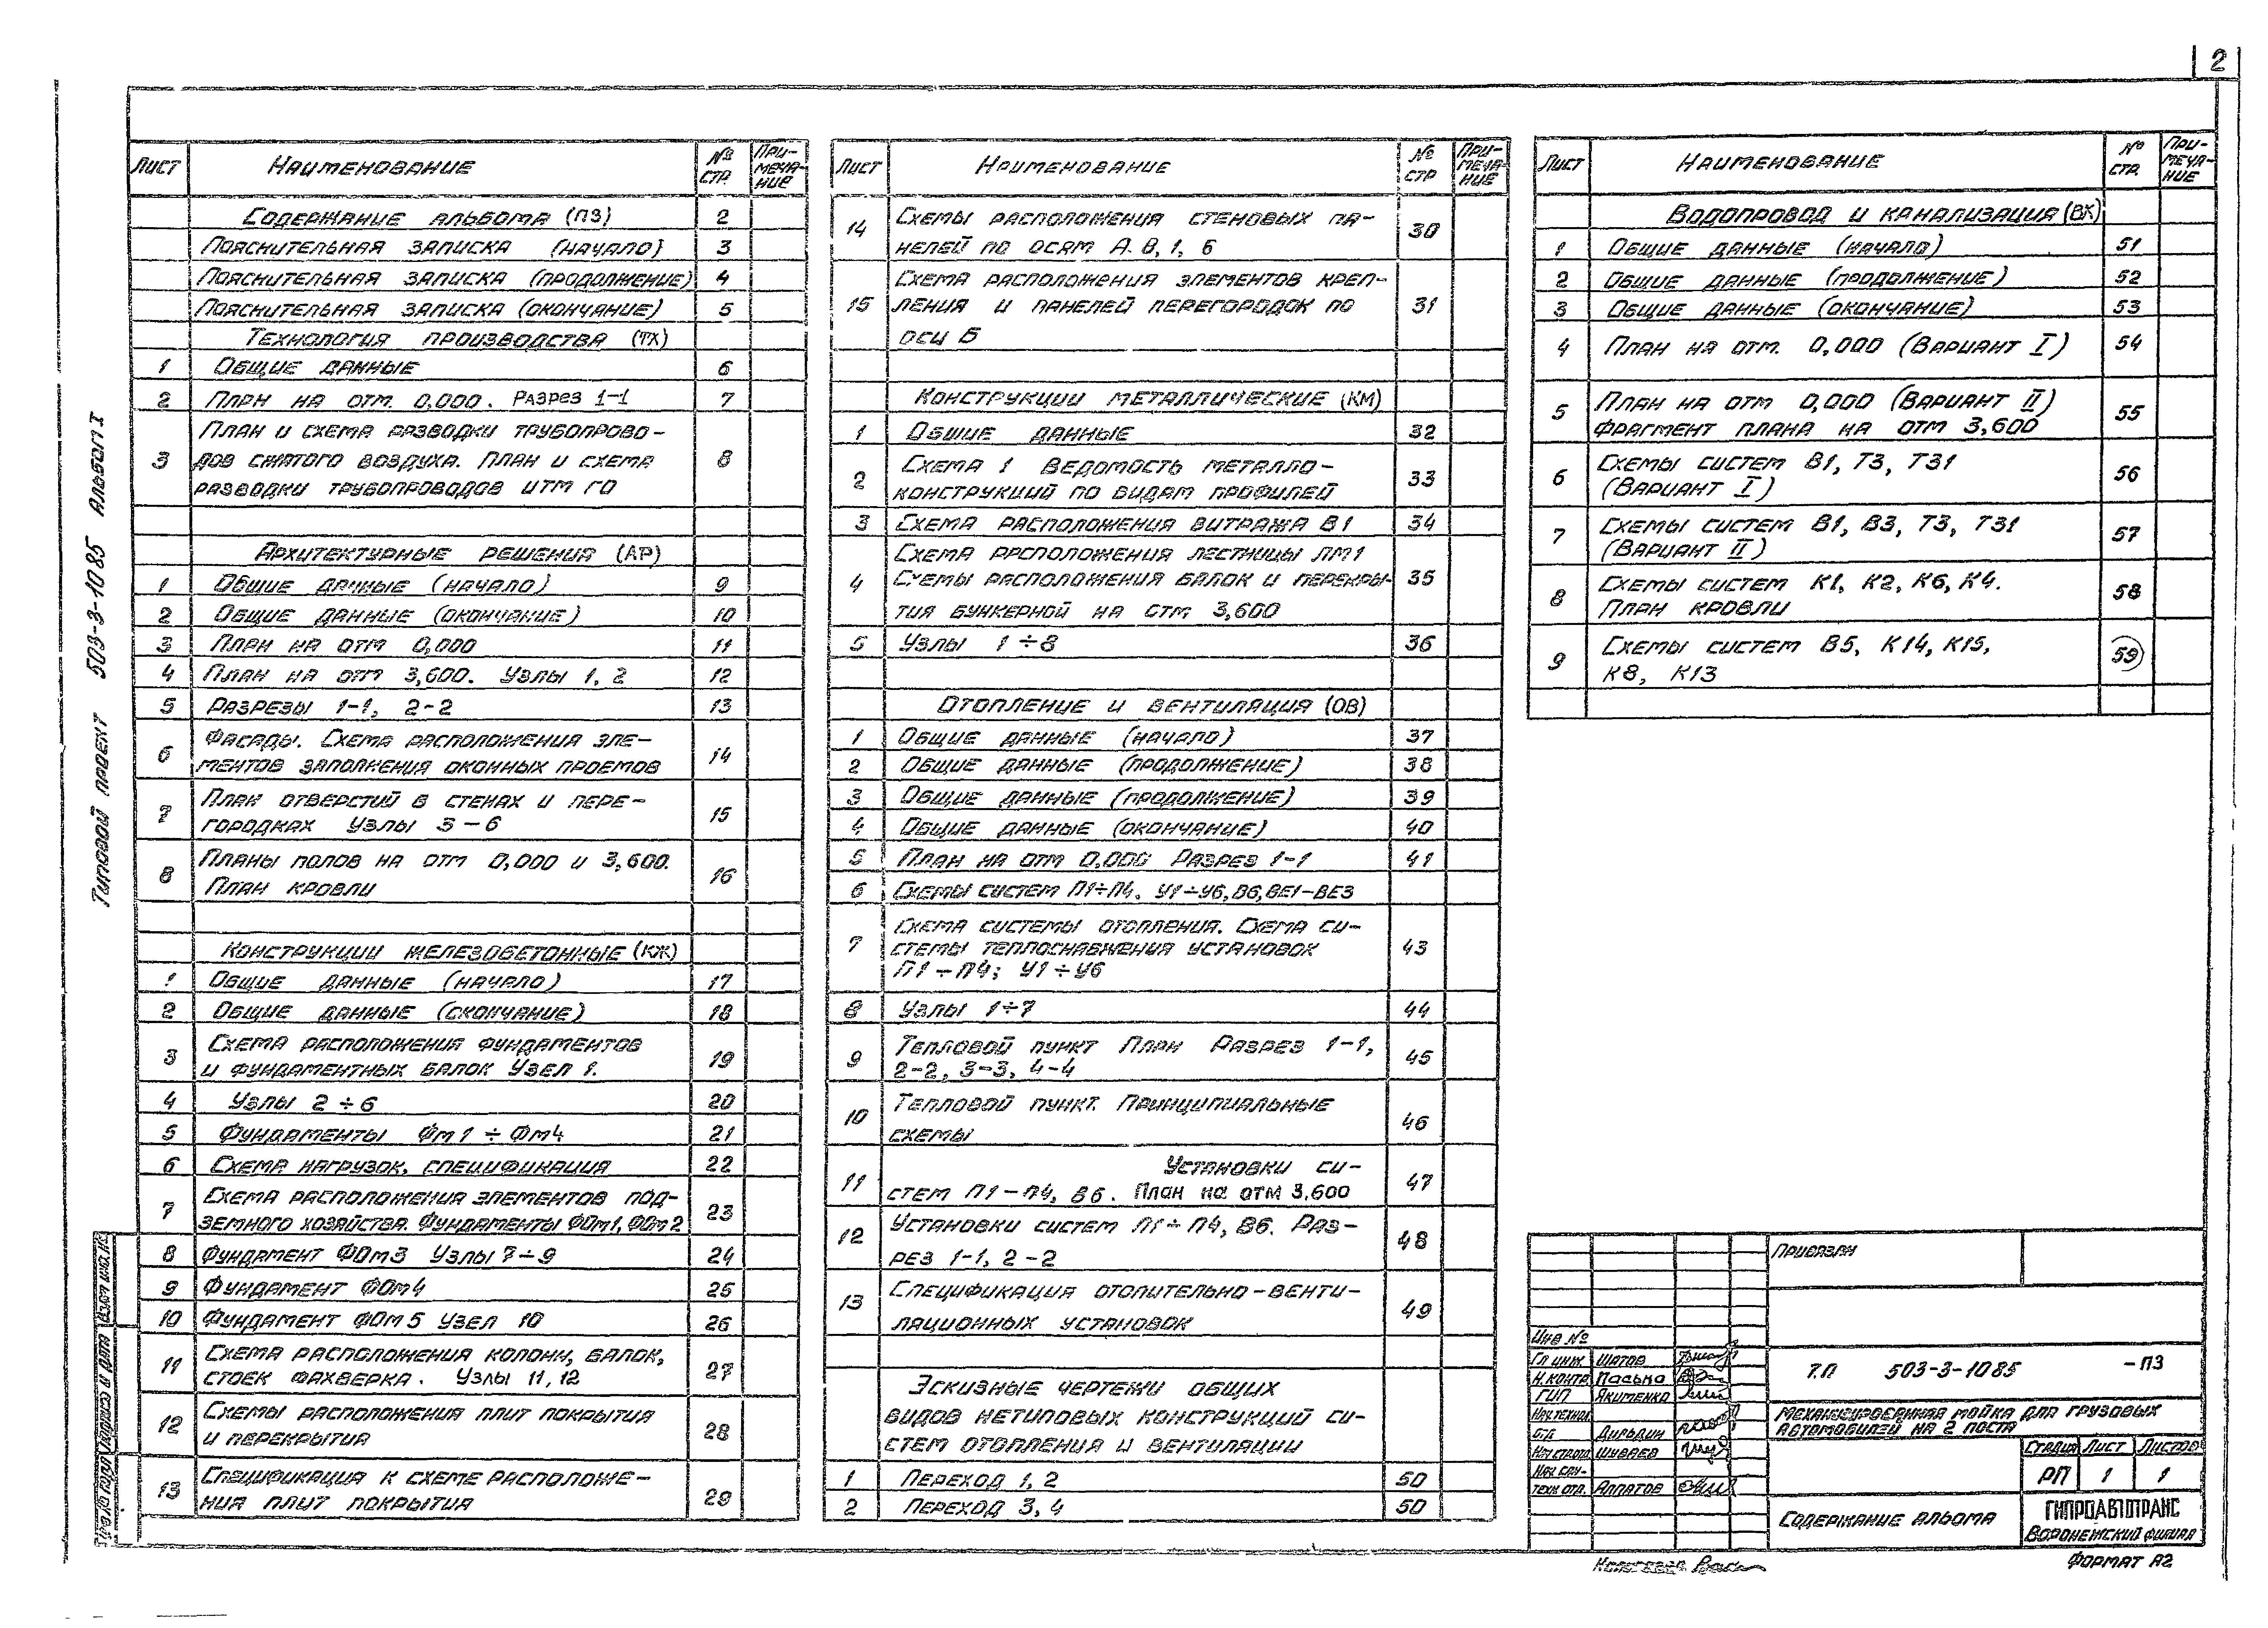 2
Типовой проект 503-3-1085 Альбом I
Лист Наименование № стр. Примечание
Содержание альбома (ПЗ) 2
Пояснительная записка (начало) 3
Пояснительная записка (продолжение) 4
Пояснительная записка (окончание) 5
Технология производства (ТХ)
1 Общие данные 6
2 План на отм. 0,000. Разрез 1-1 7
План и схема разводки трубопрово-
3 дов сжатого воздуха. План и схема 8
разводки трубопроводов ИТМ ГО
Архитектурные решения (АР)
1 Общие данные (начало) 9
2 Общие данные (окончание) 10
3 План на отм 0,000 11
4 План на отм 3,600. Узлы 1, 2 12
5 Разрезы 1-1, 2-2 13
6 Фасады. Схема расположения эле- 14
ментов заполнения оконных проемов
7 План отверстий в стенах и пере- 15
городках Узлы 3-6
8 Планы полов на отм 0,000 и 3,600. 16
План кровли
Конструкции железобетонные (КЖ)
1 Общие данные (начало) 17
2 Общие данные (окончание) 18
3 Схема расположения фундаментов 19
и фундаментных балок Узел 1.
4 Узлы 2÷6 20
5 Фундаменты Фм1÷Фм4 21
6 Схема нагрузок, спецификация 22
7 Схема расположения элементов под- 23
земного хозяйства. Фундаменты ФОм1, ФОм2
8 Фундамент ФОм3 Узлы 7÷9 24
9 Фундамент ФОм4 25
10 Фундамент ФОм5 Узел 10 26
11 Схема расположения колонн, балок, 27
стоек фахверка. Узлы 11, 12
12 Схемы расположения плит покрытия 28
и перекрытия
13 Спецификация к схеме расположе- 29
ния плит покрытия
Лист Наименование № стр Примечание
14 Схемы расположения стеновых па- 30
нелей по осям А. В, 1, 6
Схема расположения элементов креп-
15 ления и панелей перегородок по 31
оси Б
Конструкции металлические (КМ)
1 Общие данные 32
2 Схема 1 Ведомость металло- 33
конструкций по видам профилей
3 Схема расположения витража В1 34
Схема расположения лестницы ЛМ1
4 Схемы расположения балок и перекры- 35
тия бункерной на отм 3,600
5 Узлы 1÷8 36
Отопление и вентиляция (ОВ)
1 Общие данные (начало) 37
2 Общие данные (продолжение) 38
3 Общие данные (продолжение) 39
4 Общие данные (окончание) 40
5 План на отм 0,000 Разрез 1-1 41
6 Схемы систем П1÷П4. У1÷У6, В6, ВЕ1-ВЕ3
Схема системы отопления. Схема си-
7 стемы теплоснабжения установок 43
П1÷П4; У1÷У6
8 Узлы 1÷7 44
9 Тепловой пункт План Разрез 1-1, 45
2-2, 3-3, 4-4
10 Тепловой пункт. Принципиальные 46
схемы
11 Установки си- 47
стем П1-П4, В6. План на отм 3.600
12 Установки систем П1÷П4, В6. Раз- 48
рез 1-1, 2-2
13 Спецификация отопительно-венти- 49
ляционных установок
Эскизные чертежи общих
видов нетиповых конструкций си-
стем отопления и вентиляции
1 Переход 1, 2 50
2 Переход 3, 4 50
Лист Наименование № стр. Примечание
Водопровод и канализация (ВК)
1 Общие данные (начало) 51
2 Общие данные (продолжение) 52
3 Общие данные (окончание) 53
4 План на отм. 0,000 (Вариант I) 54
5 План на отм 0,000 (Вариант II) 55
фрагмент плана на отм 3,600
6 Схемы систем В1, Т3, Т31 56
(Вариант I)
7 Схемы систем В1, В3, Т3, Т31 57
(Вариант II)
8 Схемы систем К1, К2, К6, К4. 58
План кровли
9 Схемы систем В5, К14, К15, 59
К8, К13
Привязан
Инв №
Гл инж Шатов
Н. контр Пасько
ГИП Якименко
Нач. технол
отд Дильдин
Нач строд Шиваев
Нач. сан-
техн отд. Алпатов
Т.П 503-3-1085 -ПЗ
Механизированная мойка для грузовых
автомобилей на 2 поста
Стадия Лист Листов
РП 1 1
Содержание альбома
ГИПРОАВТОТРАНС
Воронежский филиал
Формат А2
Инв № подл Подпись и дата Взам инв. №